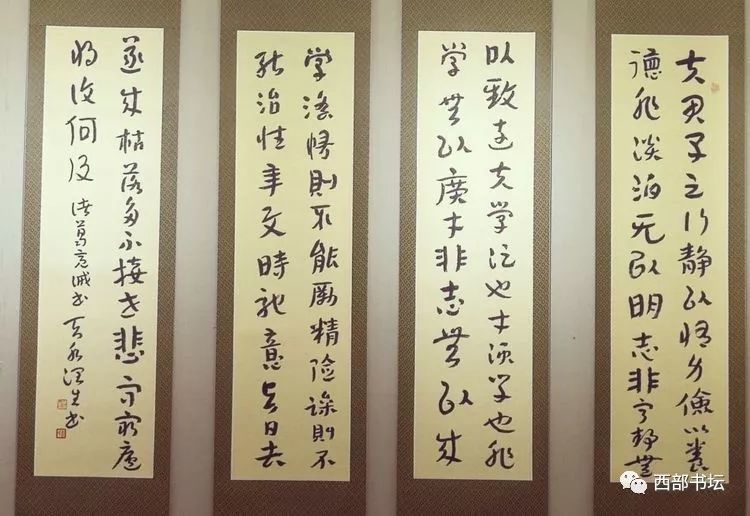 夫君子之行静以修身儉以養
德非淡泊无以明志非宁静無
以致遠夫学也才须学也非
学無以廣才非志無以成
学滔慢則不能勵精险躁則不
能治性年与時馳意与日去
遂成枯落多不接世悲守窮廬
将復何及 诸葛亮诫书 书
西部书坛